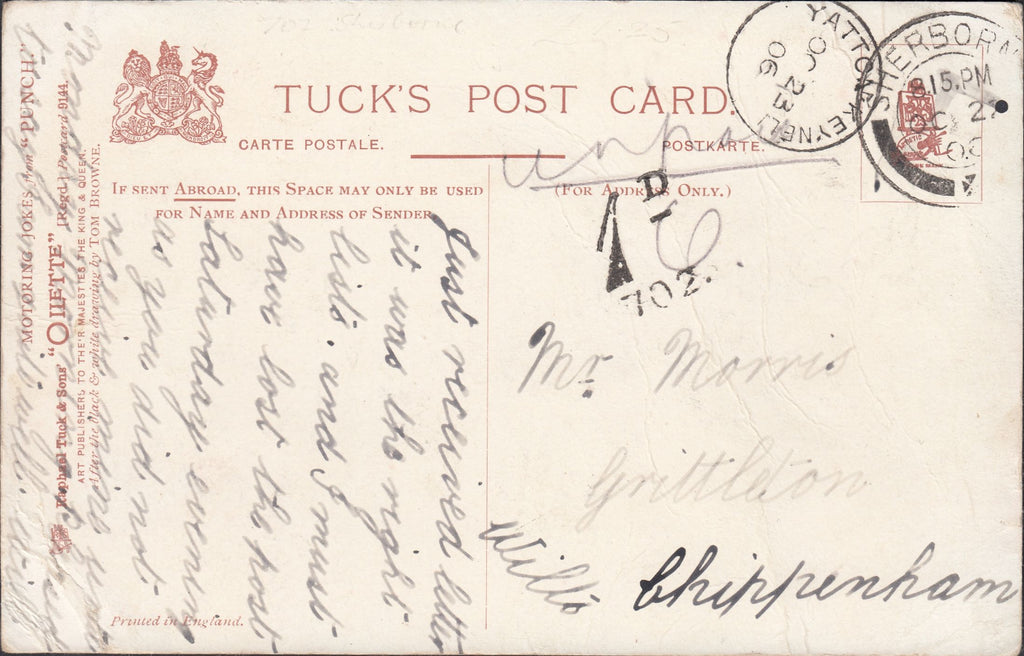 702 Sherborne
TUCK'S POST CARD.
CARTE POSTALE.
POSTKARTE.
IF SENT ABROAD, THIS SPACE MAY ONLY BE USED
FOR NAME AND ADDRESS OF SENDER.
(FOR ADDRESS ONLY.)
YATTON KEYNELL
OC 23
06
SHERBORN
8.15.PM
OC 2
1D
702.
Mr Morris
Grittleton
Wilts
Chippenham
Just received letter
it was the right
list. and I must
have lost the post
Saturday evening
as you did not
receive mine
MOTORING JOKES from "PUNCH."
Raphael Tuck & Sons' "OILETTE" [Regd.] Postcard 9144.
ART PUBLISHERS TO THEIR MAJESTIES THE KING & QUEEN.
After the black & white drawing by TOM BROWNE.
Printed in England.